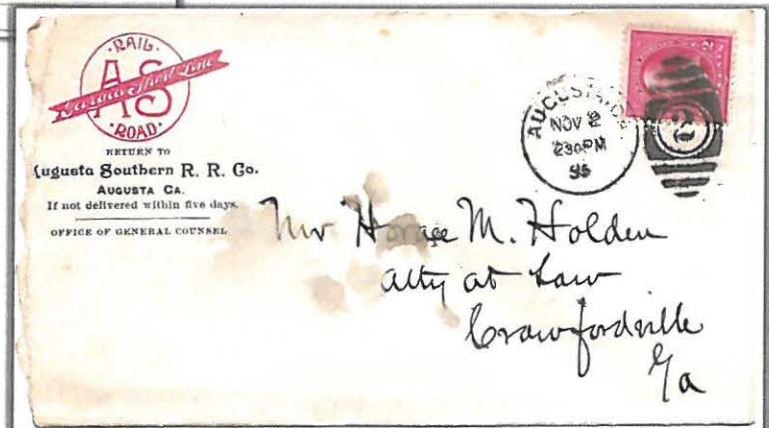 RAIL
AS
Georgia Short Line
ROAD
RETURN TO
Augusta Southern R. R. Co.
AUGUSTA GA.
If not delivered within five days.
OFFICE OF GENERAL COUNSEL
AUGUSTA, GA.
NOV 2
230PM
95
2
Mr Horace M. Holden
Atty at Law
Crawfordville
Ga